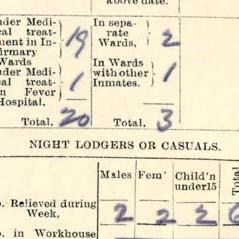 above date.
nder Medi-
cal treat-
ment in In-
firmary
Wards
19
In sepa-
rate
Wards,
2
nder Medi-
cal treat-
n Fever
Hospital,
1
In Wards
with other
Inmates.
1
Total, 20
Total, 3
NIGHT LODGERS OR CASUALS.
Males Fem' Child'n under15 Total
o. Relieved during
Week, 2 2 2 6
o. in Workhouse